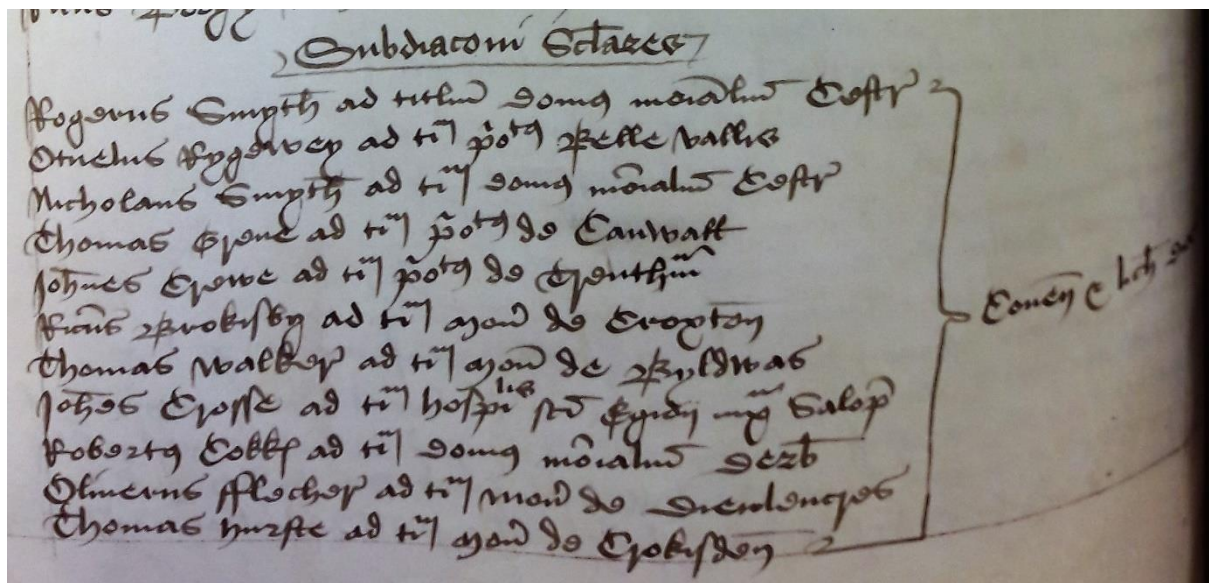 Subdiaconi Sclares
Rogerus Smyth ad titlm domus moialm Cestr
Otuelus Rygewey ad tm porats Belle vallis
Nicholaus Smyth ad tm domus moialm Cestr
Thomas Grene ad tm porats de Canwall
Johnes Crewe ad tm porats de Trenthm
Ricus Brokisby ad tm mon de Croxton
Thomas Walker ad tm mon de Byldwas
Johes Crosse ad tm hospilis sci Egidij iux Salop
Robertus Cokk ad tm domus moialm Derb
Oliuerus fflecher ad tm mon de Dieulencres
Thomas Hurste ad tm mon de Crokisden
Couen & lich